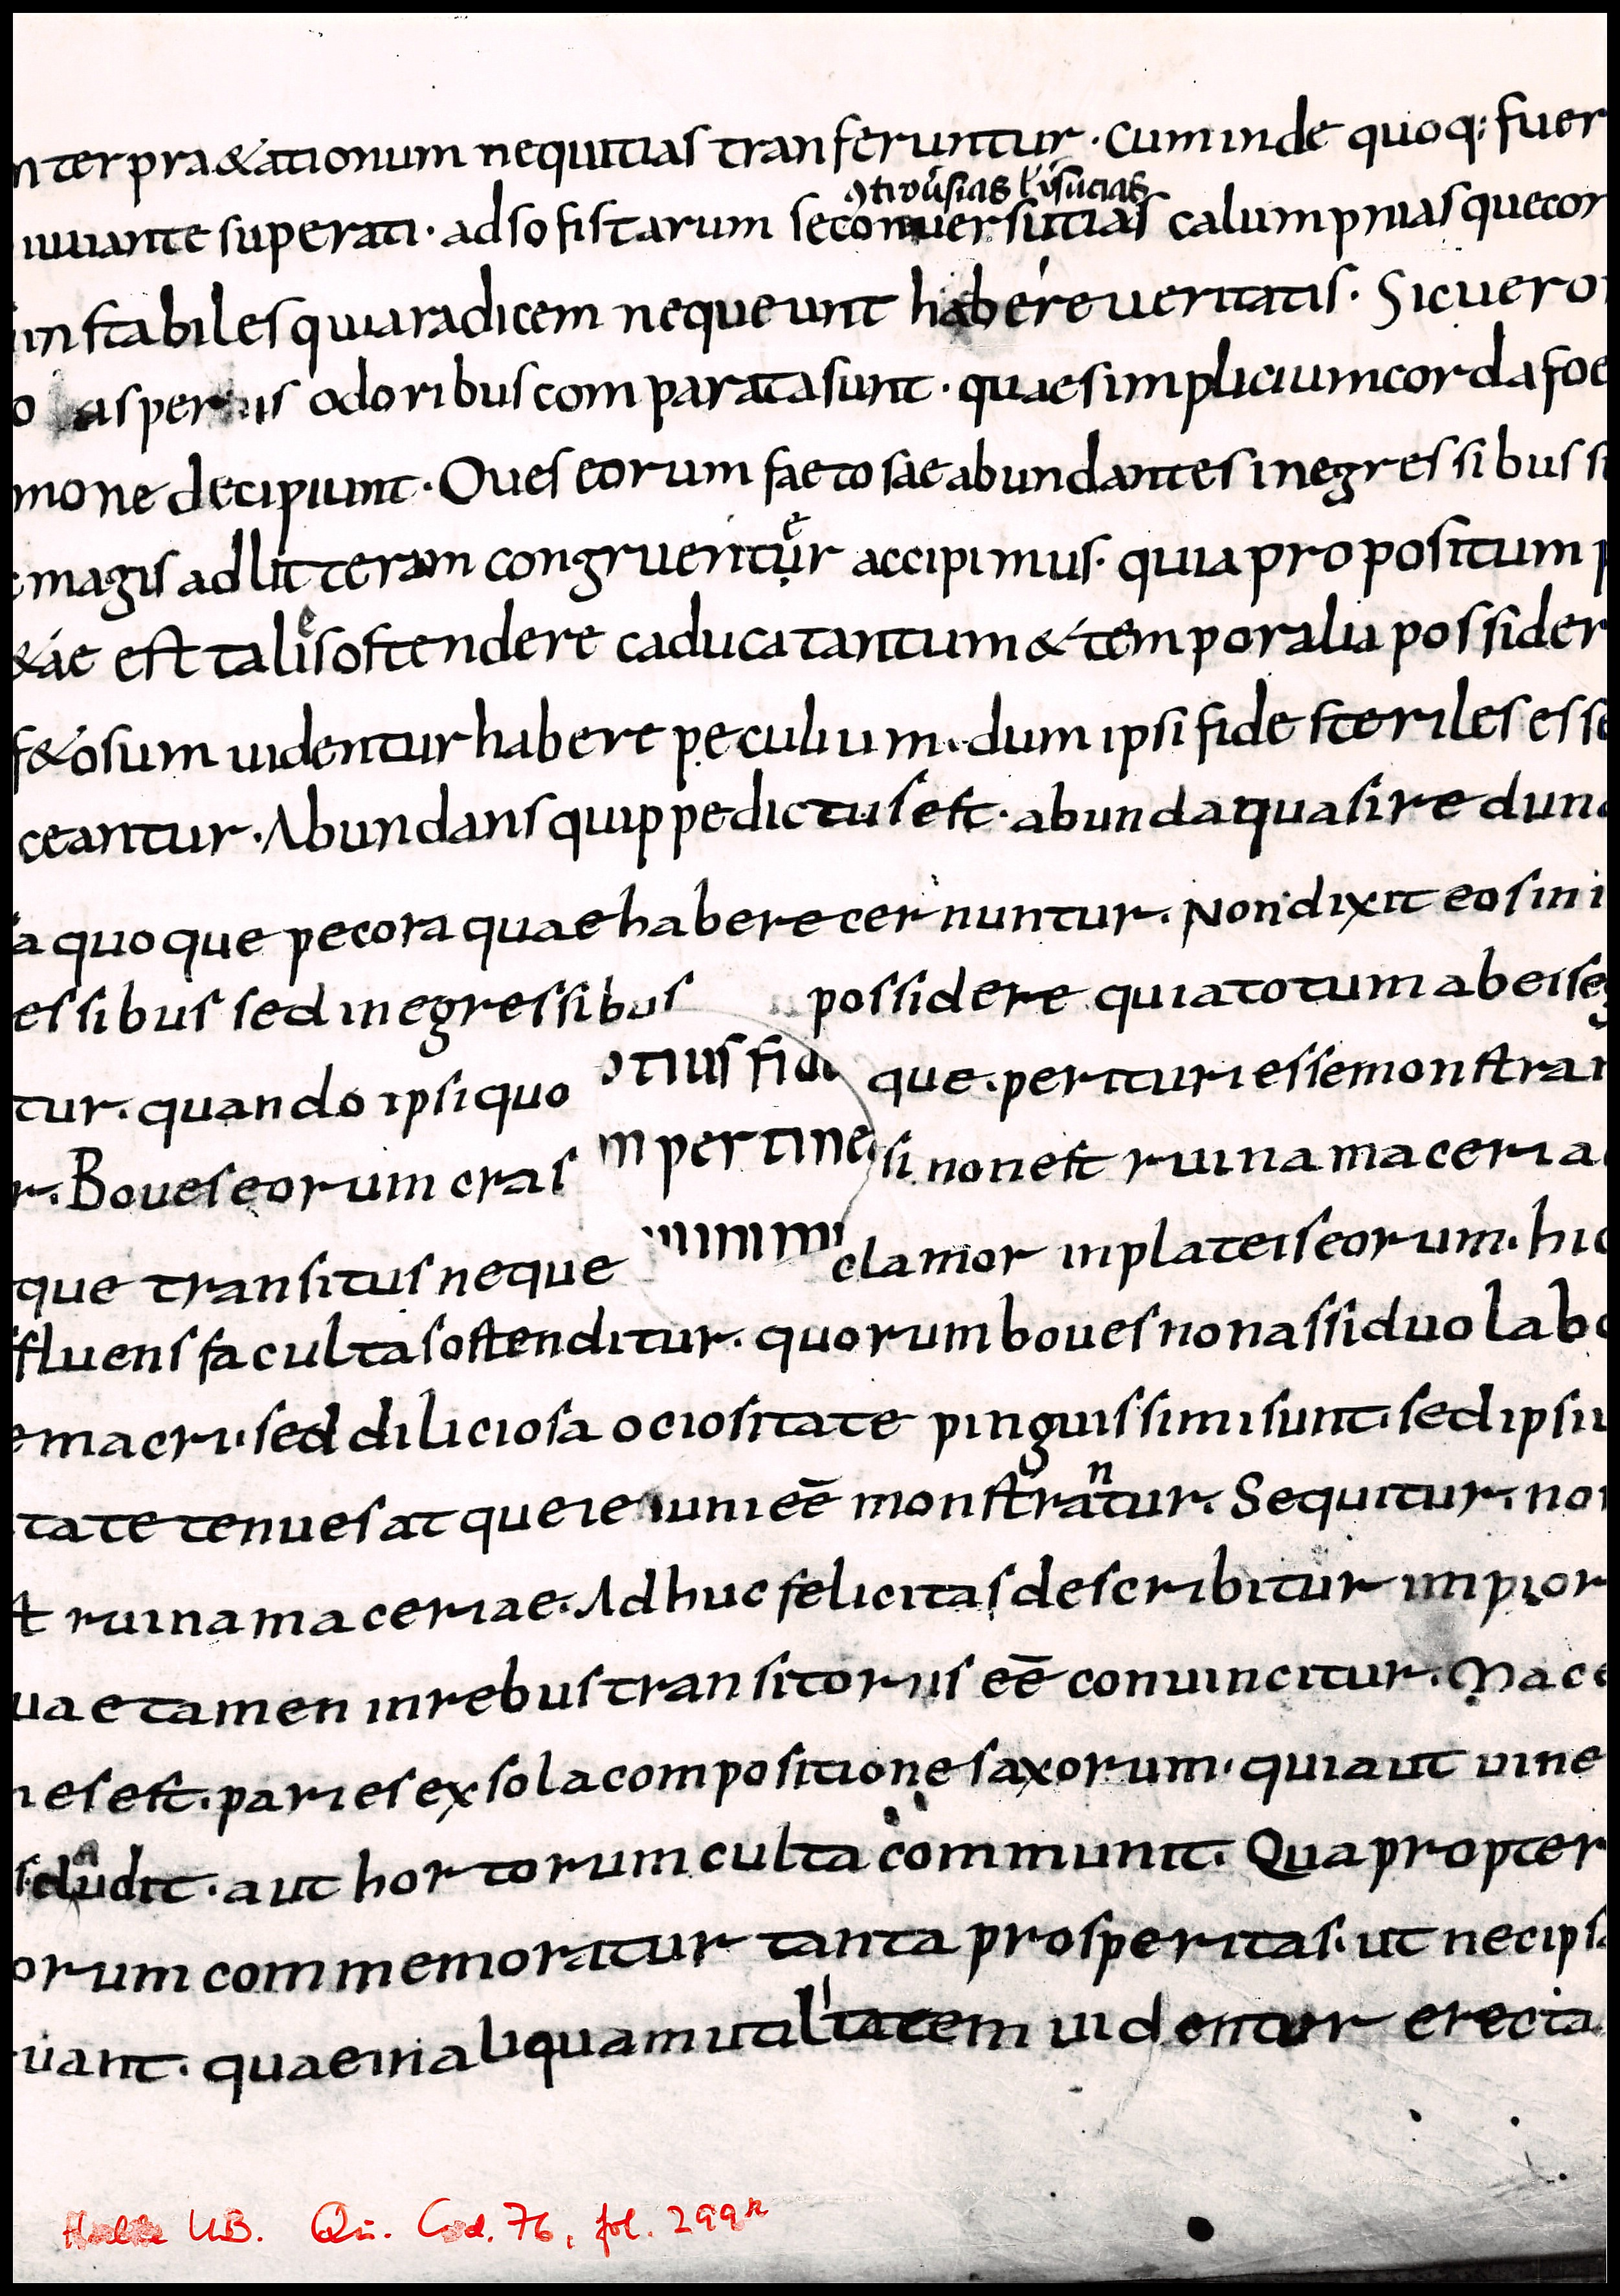 nter pra&ationum nequitias tranferuntur · Cum inde quoq; fuer
iuuante superati · ad sofistarum se conuersutias calumpniasque cor
instabiles quia radicem nequeunt habere ueritatis · Sic uero
o aspersus odoribus comparata sunt · quae simplicium corda foe
mone decipiunt · Oues eorum faetosae abundantes in egressibus s
magis ad litteram congruentur accipimus · quia propositum p
&ae est talis ostendere caduca tantum & temporalia possider
f&osum uidentur habere peculium · dum ipsi fide steriles esse
ceantur · Abundans quippe dictus est · abunda quasi re dun
a quoque pecora quae habere cernuntur · Non dixit eos in i
essibus sed in egressibus possidere quia totum ab eis eg
tur · quando ipsi quo otius fid que · perituri esse monstran
r · Boues eorum cras m pertine si non est ruina maceria
que transitus neque clamor in plateis eorum · hic
ffluens facultas ostenditur · quorum boues non assiduo labo
e macri · sed diliciosa ociositate pinguissimi sunt · sed ipsi
tate tenues atque ieiuni ee̅ monstrantur · Sequitur · non
t ruina maceriae · Adhuc felicitas describitur impior
uae tamen in rebus transitoriis ee̅ conuincitur · Mace
es est · paries ex sola compositione saxorum · quia ut uine
s claudit · aut hortorum culta communit · Qua propter
orum commemoratur tanta prosperitas · ut nec ips
uant · quae in aliquam utilitatem uidentur erecta
Halle UB. Qu. Cod. 76, fol. 299r